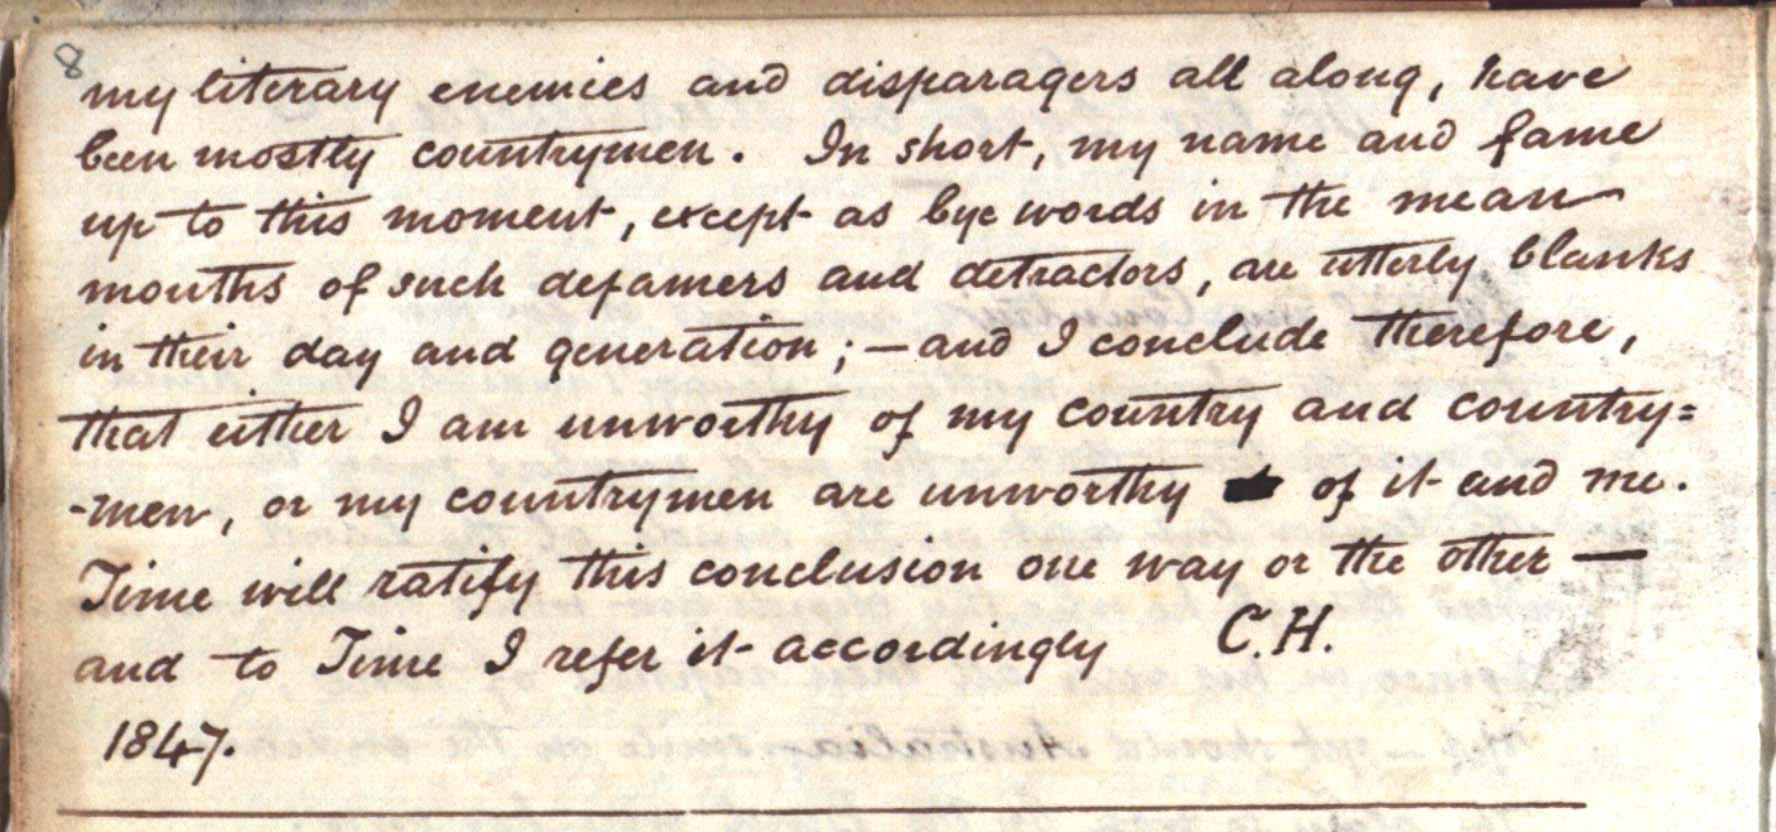 8
my literary enemies and disparagers all along, have
been mostly countrymen. In short, my name and fame
up to this moment, except as bye words in the mean
mouths of such defamers and detractors, are utterly blanks
in their day and generation; — and I conclude therefore,
that either I am unworthy of my country and country=
-men, or my countrymen are unworthy of it and me.
Time will ratify this conclusion one way or the other —
and to Time I refer it accordingly C.H.
1847.